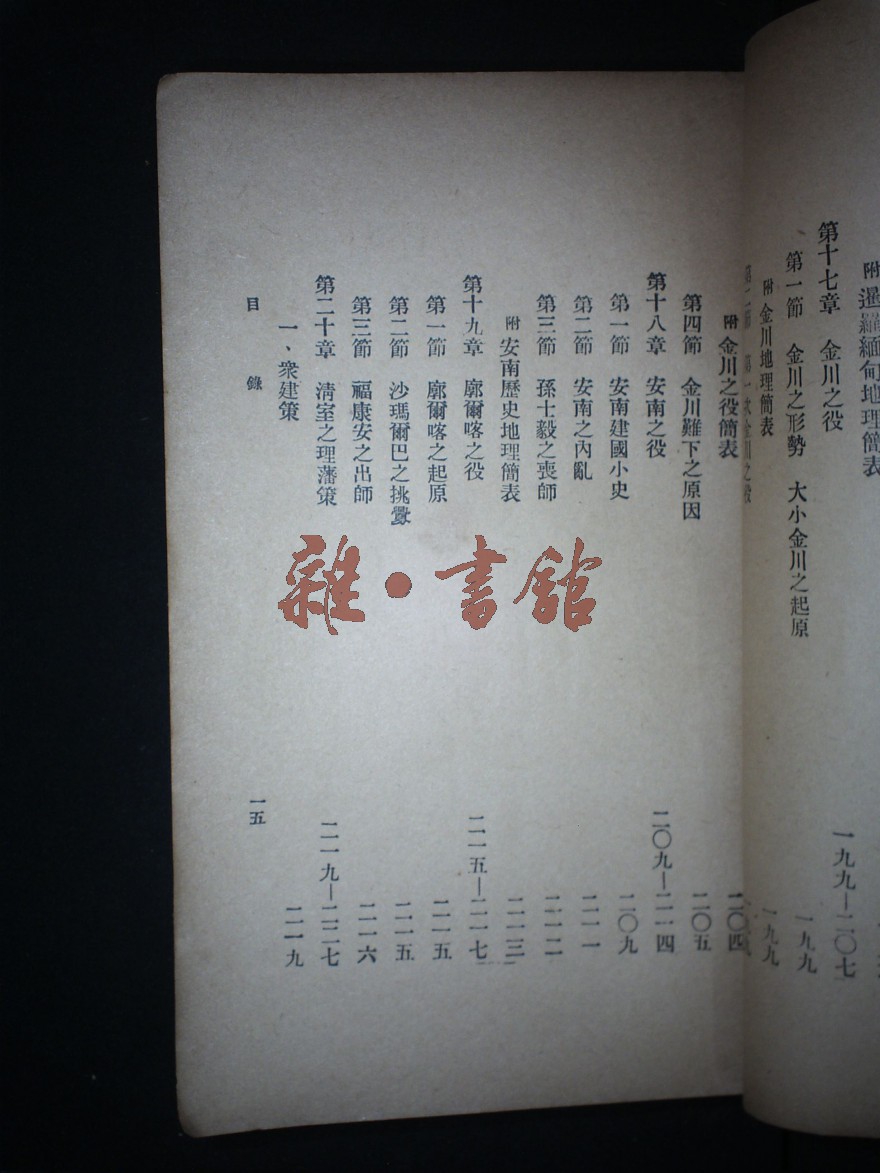 附 暹羅緬甸地理簡表
第十七章 金川之役 一九九—二〇七
第一節 金川之形勢 大小金川之起原 一九九
附 金川地理簡表 一九九
第一次金川之役
附 金川之役簡表 二〇四
第四節 金川難下之原因 二〇五
第十八章 安南之役 二〇九—二一四
第一節 安南建國小史 二〇九
第二節 安南之內亂 二一一
第三節 孫士毅之喪師 二一二
附 安南歷史地理簡表 二一三
第十九章 廓爾喀之役 二一五—二一七
第一節 廓爾喀之起原 二一五
第二節 沙瑪爾巴之挑釁 二一五
第三節 福康安之出師 二一六
第二十章 清室之理藩策 二一九—二二七
一、衆建策 二一九
目錄 一五
雜·書館